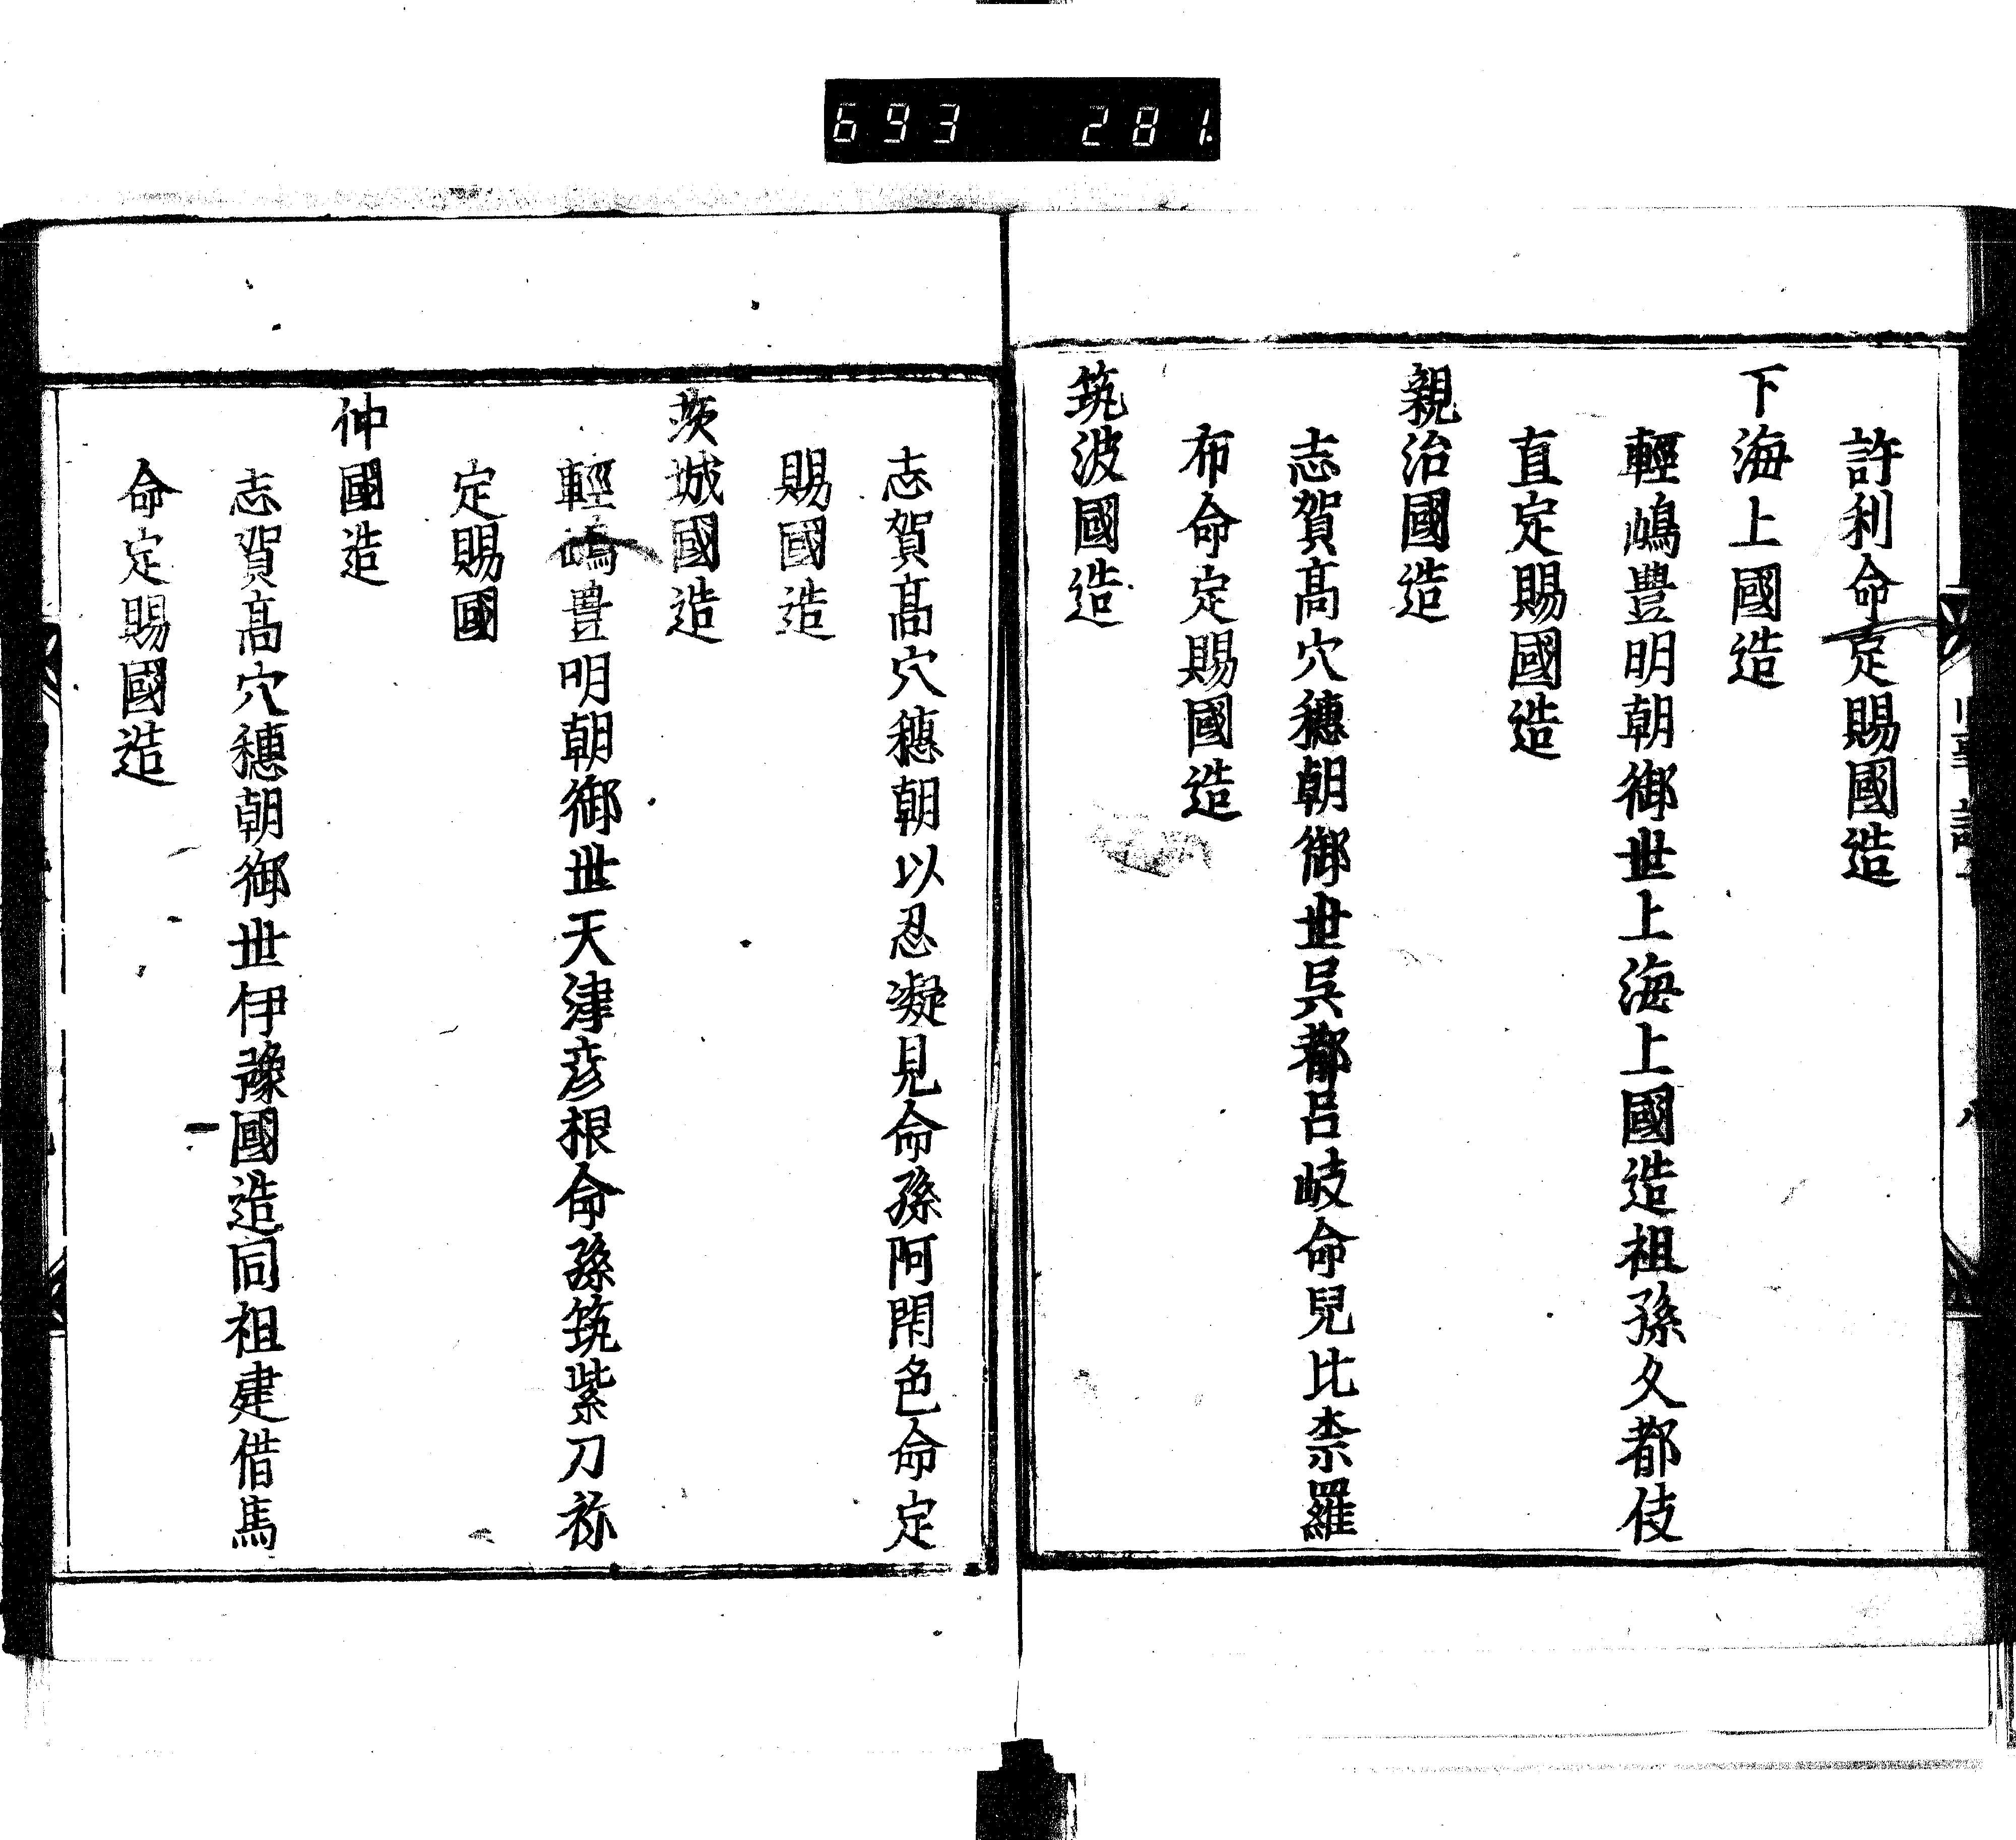 693 281
許利命定賜國造
下海上國造
輕嶋豊明朝御世上海上國造祖孫久都伎
直定賜國造
親治國造
志賀髙穴穗朝御世吴都呂岐命兒比柰羅
布命定賜國造
筑波國造
志賀髙穴穗朝以忍凝見命孫阿閇色命定
賜國造
茨城國造
輕嶋豊明朝御世天津彦根命孫筑紫刀祢
定賜國
仲國造
志賀髙穴穗朝御世伊豫國造同祖建借馬
命定賜國造